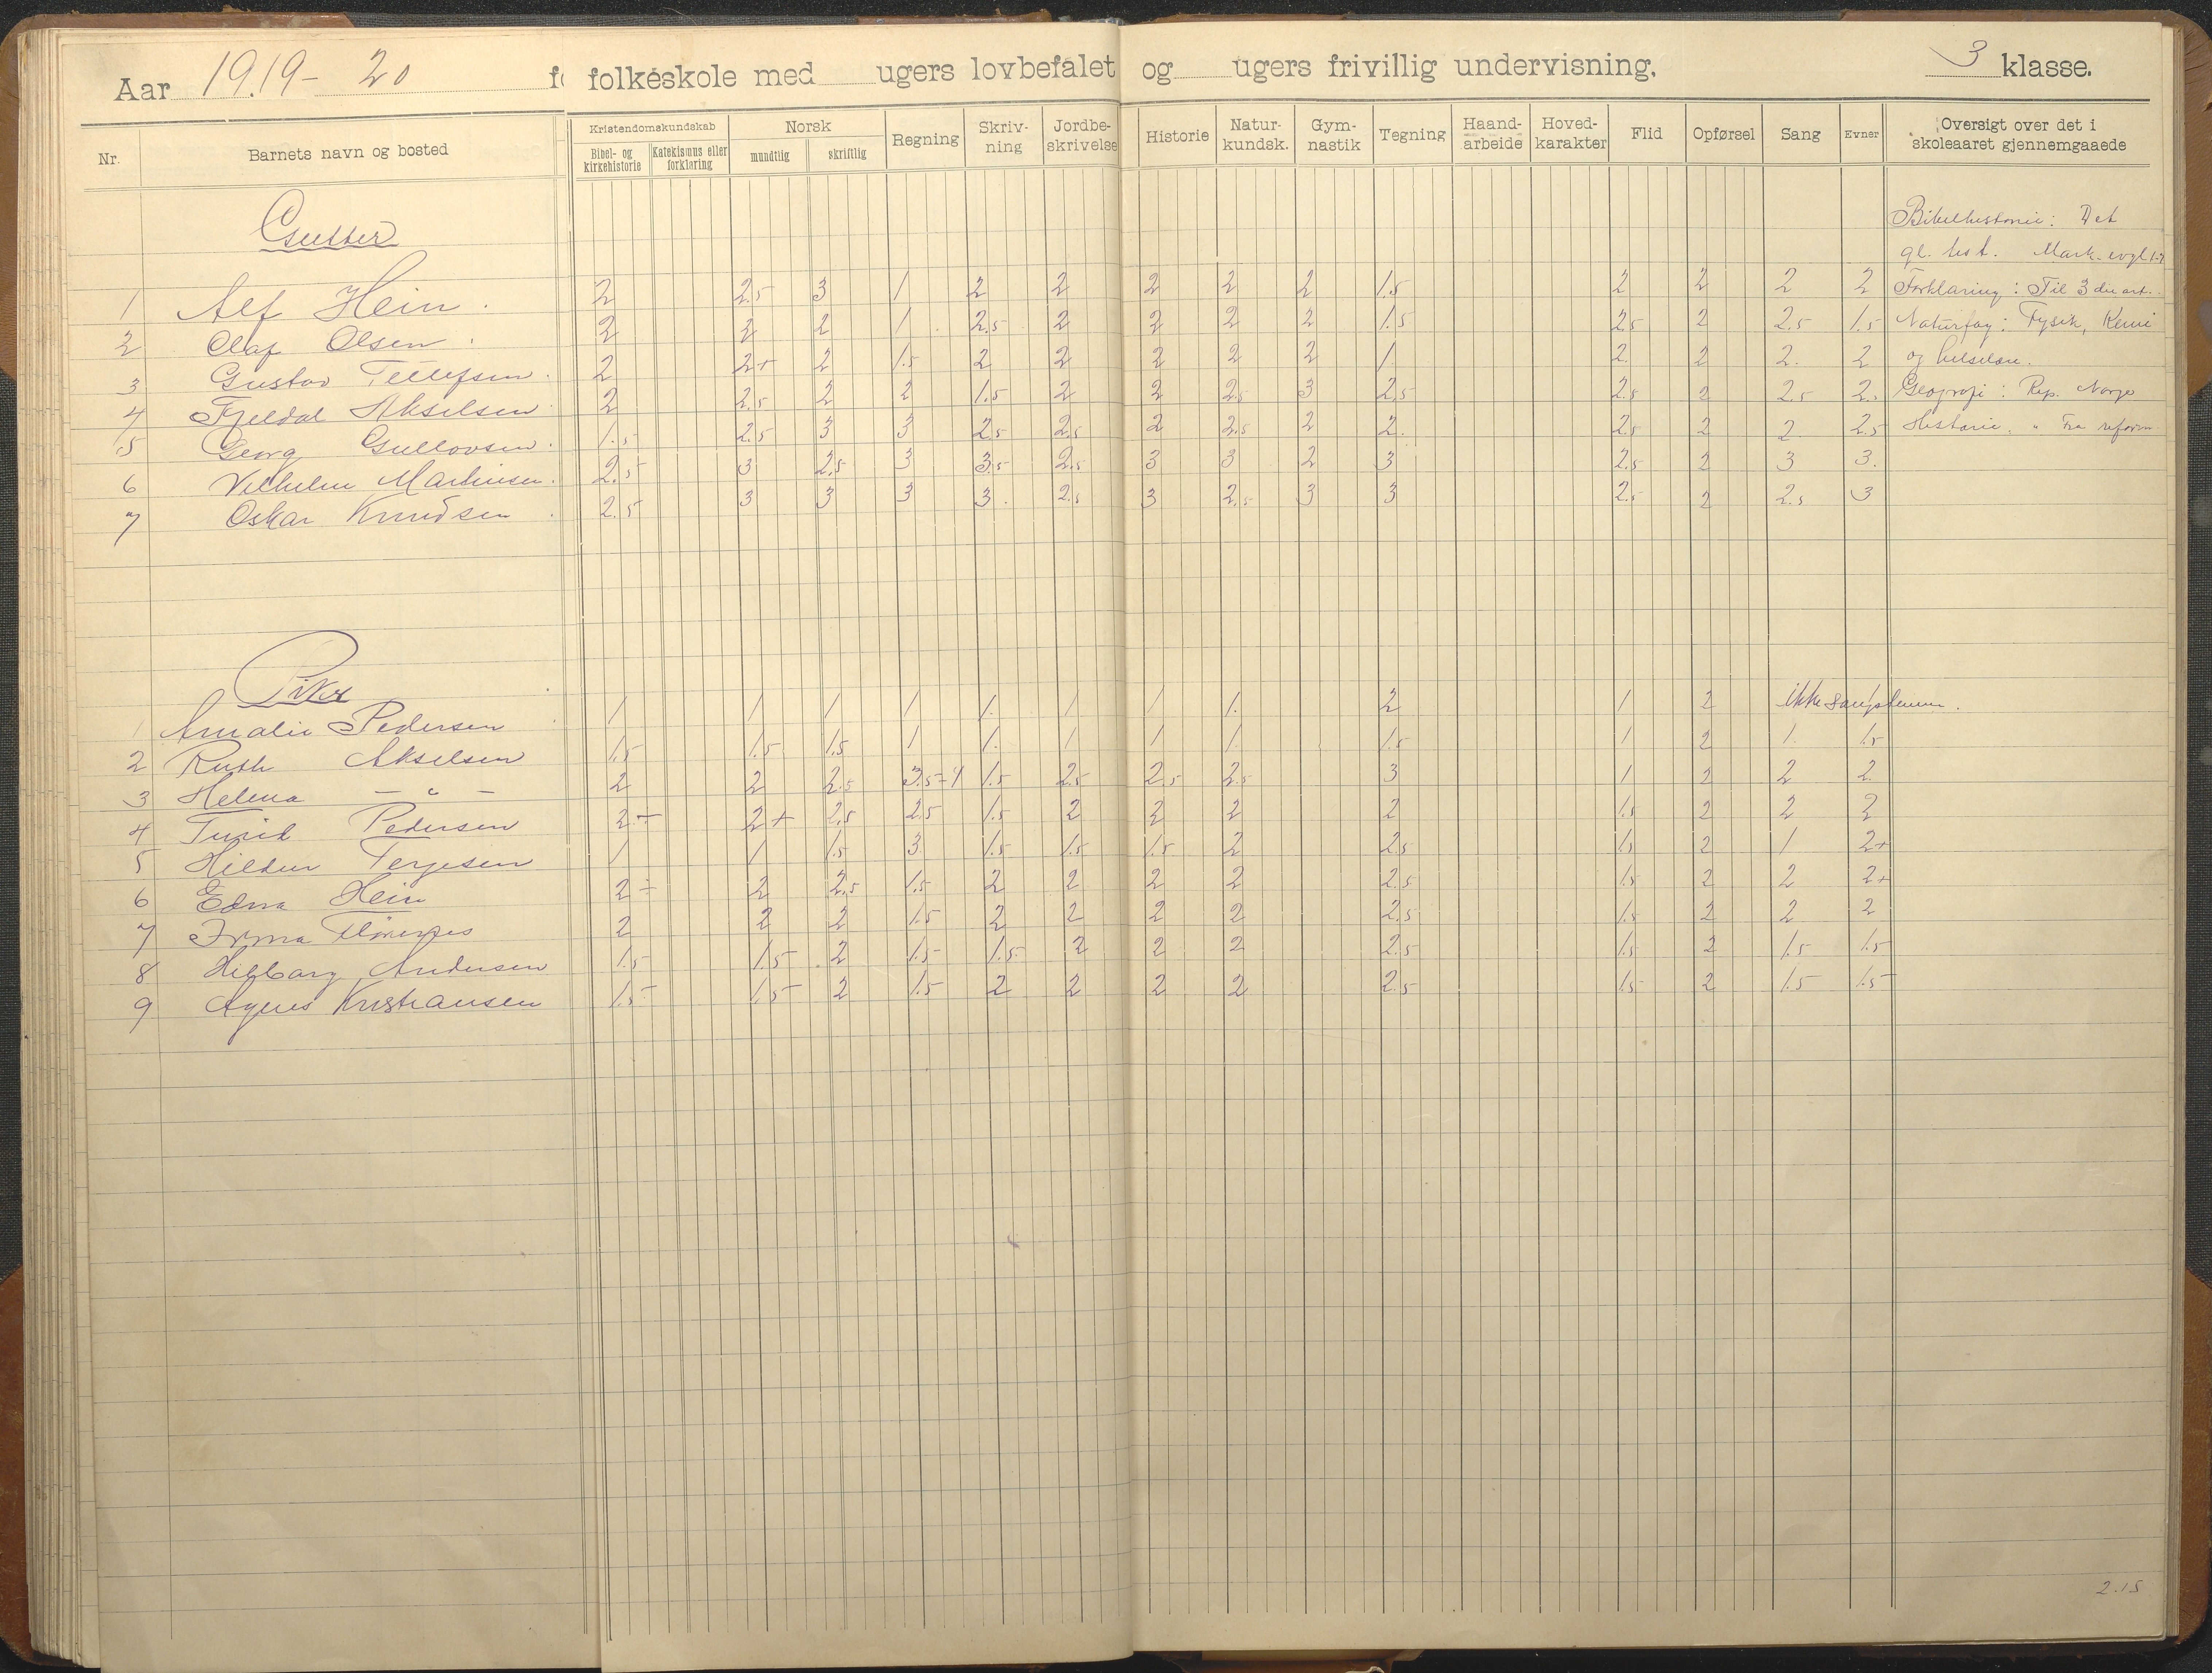 Aar 1919-20 folkeskole med ugers lovbefalet og ugers frivillig undervisning. 3 klasse.
Nr. Barnets navn og bosted Kristendomskundskab Bibel- og kirkehistorie Katekismus eller forklaring Norsk mundtlig skriftlig Regning Skriv-ning Jordbe-skrivelse Historie Natur-kundsk. Gym-nastik Tegning Haand-arbeide Hoved-karakter Flid Opførsel Sang Evner Oversigt over det i skoleaaret gjennemgaaede
Gutter
Bibelhistorie: Det
gl. test. Mark. evgl 1-7
1 Alf Hein. 2 2.5 3 1 2 2 2 2 2 1.5 2 2 2 2 Forklaring: Til 3die art.
2 Olaf Olsen. 2 2 2 1 2.5 2 2 2 2 1.5 2.5 2 2.5 1.5 Naturfag: Fysik, Kemi
3 Gustav Tellefsen. 2 2+ 2 1.5 2 2 2 2 2 1. 2. 2 2. 2 og helselære.
4 Fjeldal Akselsen 2 2.5 2 2 1.5 2 2 2.5 3 2.5 2.5 2 2.5 2. Geografi: Rep. Norge
5 Georg Gullovsen. 1.5 2.5 3 3 2.5 2.5 2 2.5 2 2. 2.5 2 2 2.5 Historie. " Fra reform.
6 Vilhelm Martinsen. 2.5 3 2.5 3 3.5 2.5 3 3 2 3 2.5 2 3 3.
7 Oskar Knudsen. 2.5 3 3 3 3. 2.5 3 2.5 3 3 2.5 2 2.5 3
Piker
1 Amalie Pedersen 1 1 1 1 1. 1 1 1. 2 1 2 ikke sangstemme.
2 Ruth Akselsen 1.5 1.5 1.5 1 1. 1 1 1. 1.5 1 2 1. 1.5
3 Helena - " - 2 2 2.5 3.5-4 1.5 2.5 2.5 2.5 3 1 2 2 2.
4 Turid Pedersen 2÷ 2+ 2.5 2.5 1.5 2 2 2 2 1.5 2 2 2
5 Hildur Terjesen 1 1 1.5 3 1.5 1.5 1.5 2 2.5 1.5 2 1 2+
6 Edna Hein 2÷ 2 2.5 1.5 2 2 2 2 2.5 1.5 2 2 2+
7 Irma 2 2 2 1.5 2 2 2 2 2.5 1.5 2 2 2
8 Andersen 1.5 1.5 2 1.5 1.5 2 2 2 2.5 1.5 2 1.5 1.5
9 Agnes Kristiansen 1.5 1.5 2 1.5 2 2 2 2 2.5 1.5 2 1.5 1.5
2.15